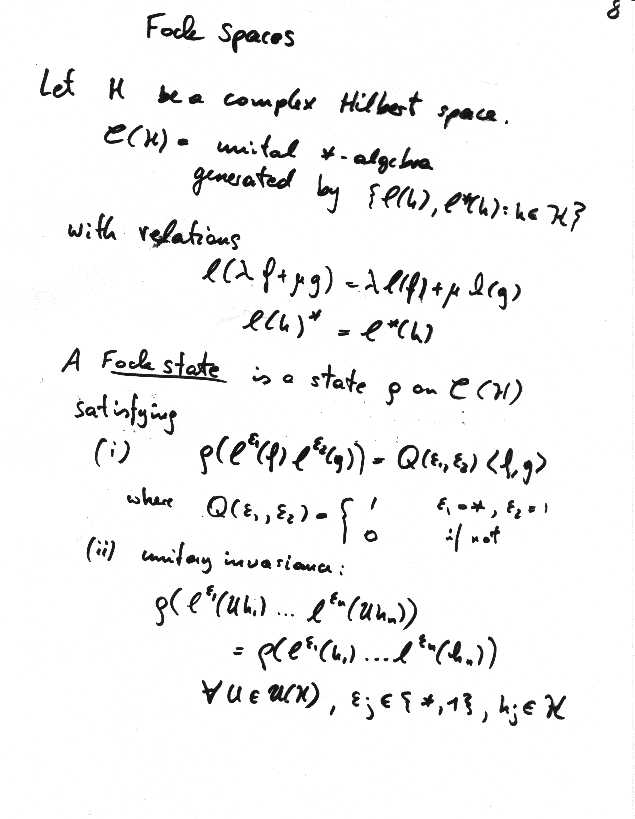 8
Fock Spaces
Let H be a complex Hilbert space.
C(H) = unital *-algebra
generated by {l(h), l*(h): h ∈ H}
with relations
l(λf + μg) = λl(f) + μl(g)
l(h)* = l*(h)
A Fock state is a state ρ on C(H)
satisfying
(i) ρ(l^ε₁(f) l^ε₂(g)) = Q(ε₁, ε₂) <f, g>
where Q(ε₁, ε₂) = { 1 ε₁ = *, ε₂ = 1
0 if not
(ii) unitary invariance:
ρ(l^ε₁(Uh₁) ... l^εₙ(Uhₙ))
= ρ(l^ε₁(h₁) ... l^εₙ(hₙ))
∀ U ∈ U(H), εⱼ ∈ {*, 1}, hⱼ ∈ H